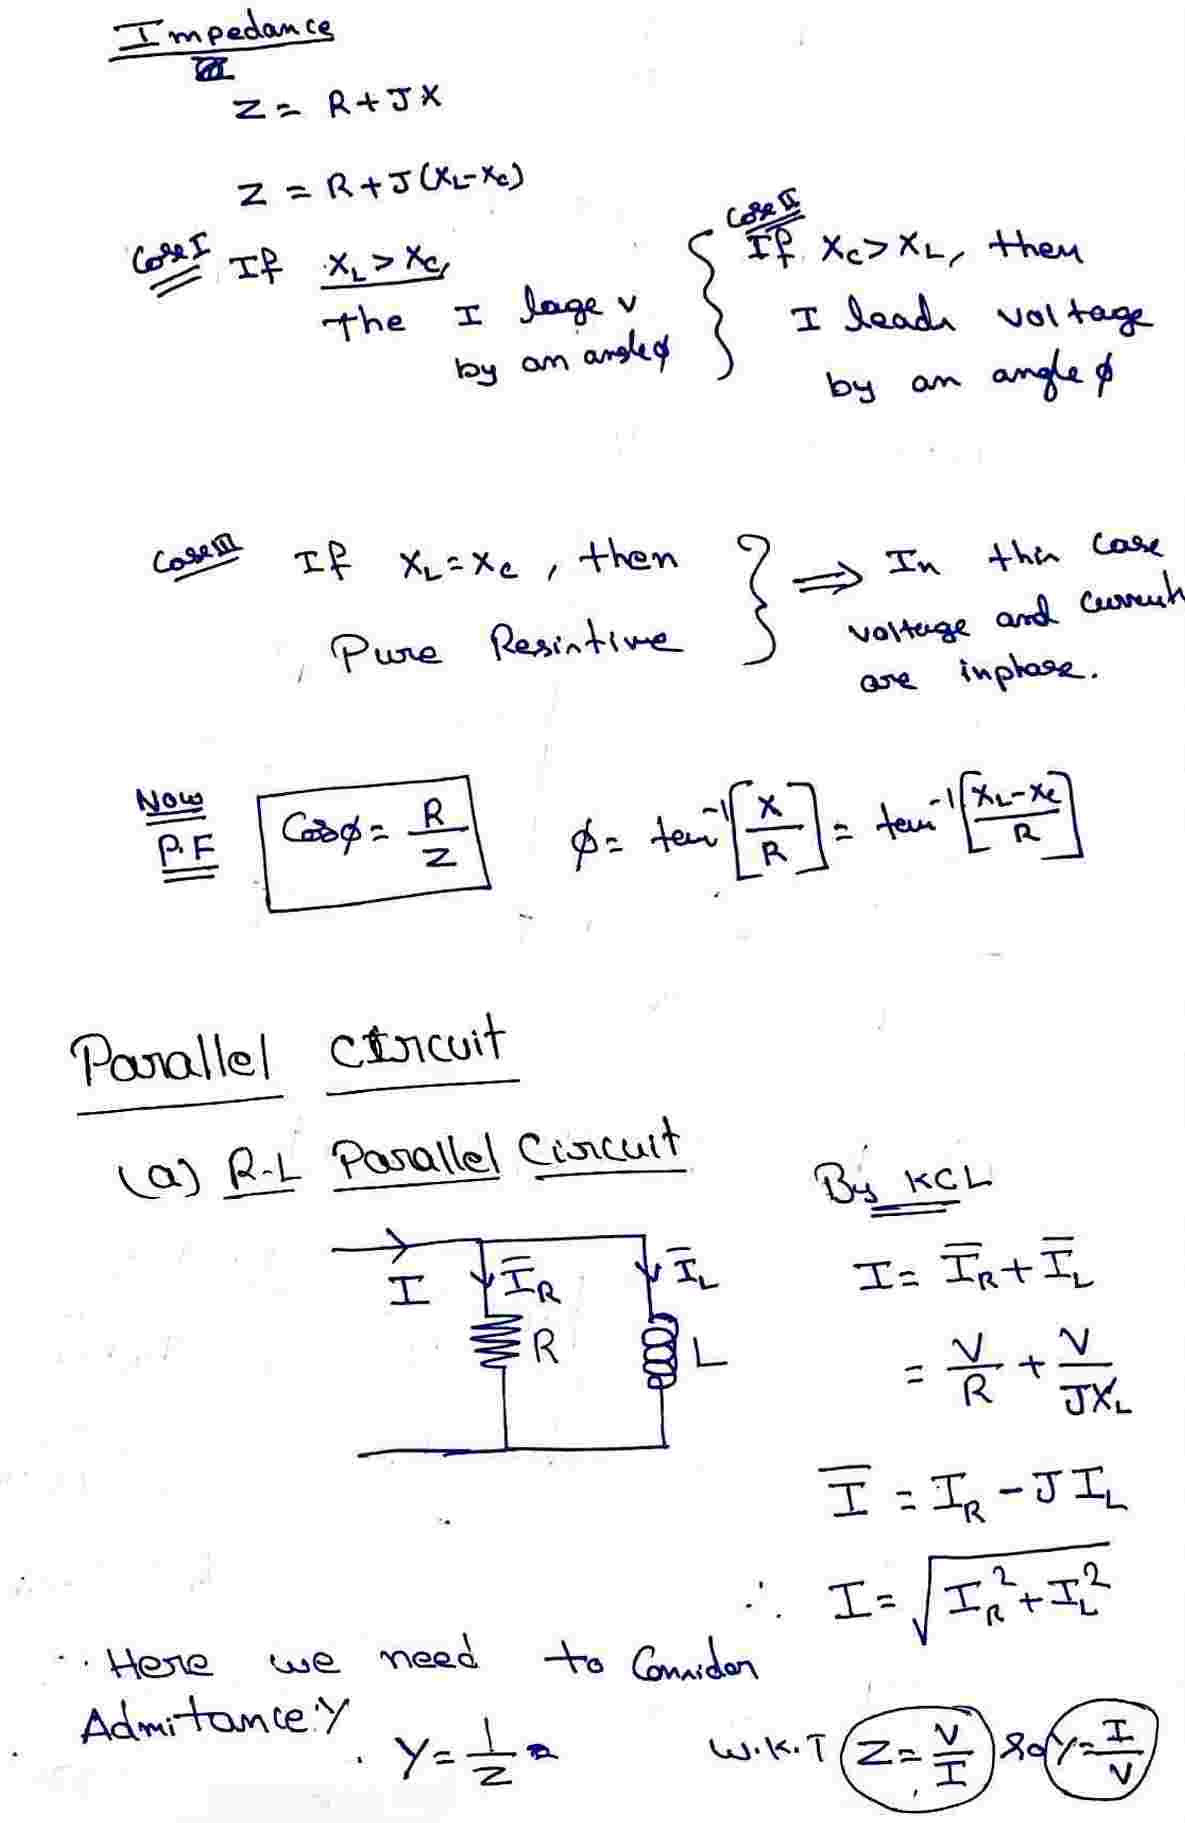 Impedance
Z = R + J X
Z = R + J (XL - Xc)
Case I If XL > Xc,
the I lage v
by an angle φ
Case II
If Xc > XL, then
I leads voltage
by an angle φ
Case III If XL = Xc , then
Pure Resistive
⟹ In this case
voltage and current
are inphase.
Now
P.F
Cosφ = R/Z
φ = tan⁻¹[X/R] = tan⁻¹[(XL - Xc)/R]
Parallel circuit
(a) R-L Parallel Circuit
I
I̅R
R
I̅L
L
By KCL
I = I̅R + I̅L
= V/R + V/JXL
I̅ = IR - J IL
∴ I = √(IR² + IL²)
∴ Here we need to Consider
Admitance Y
Y = 1/Z
W.K.T Z = V/I so Y = I/V